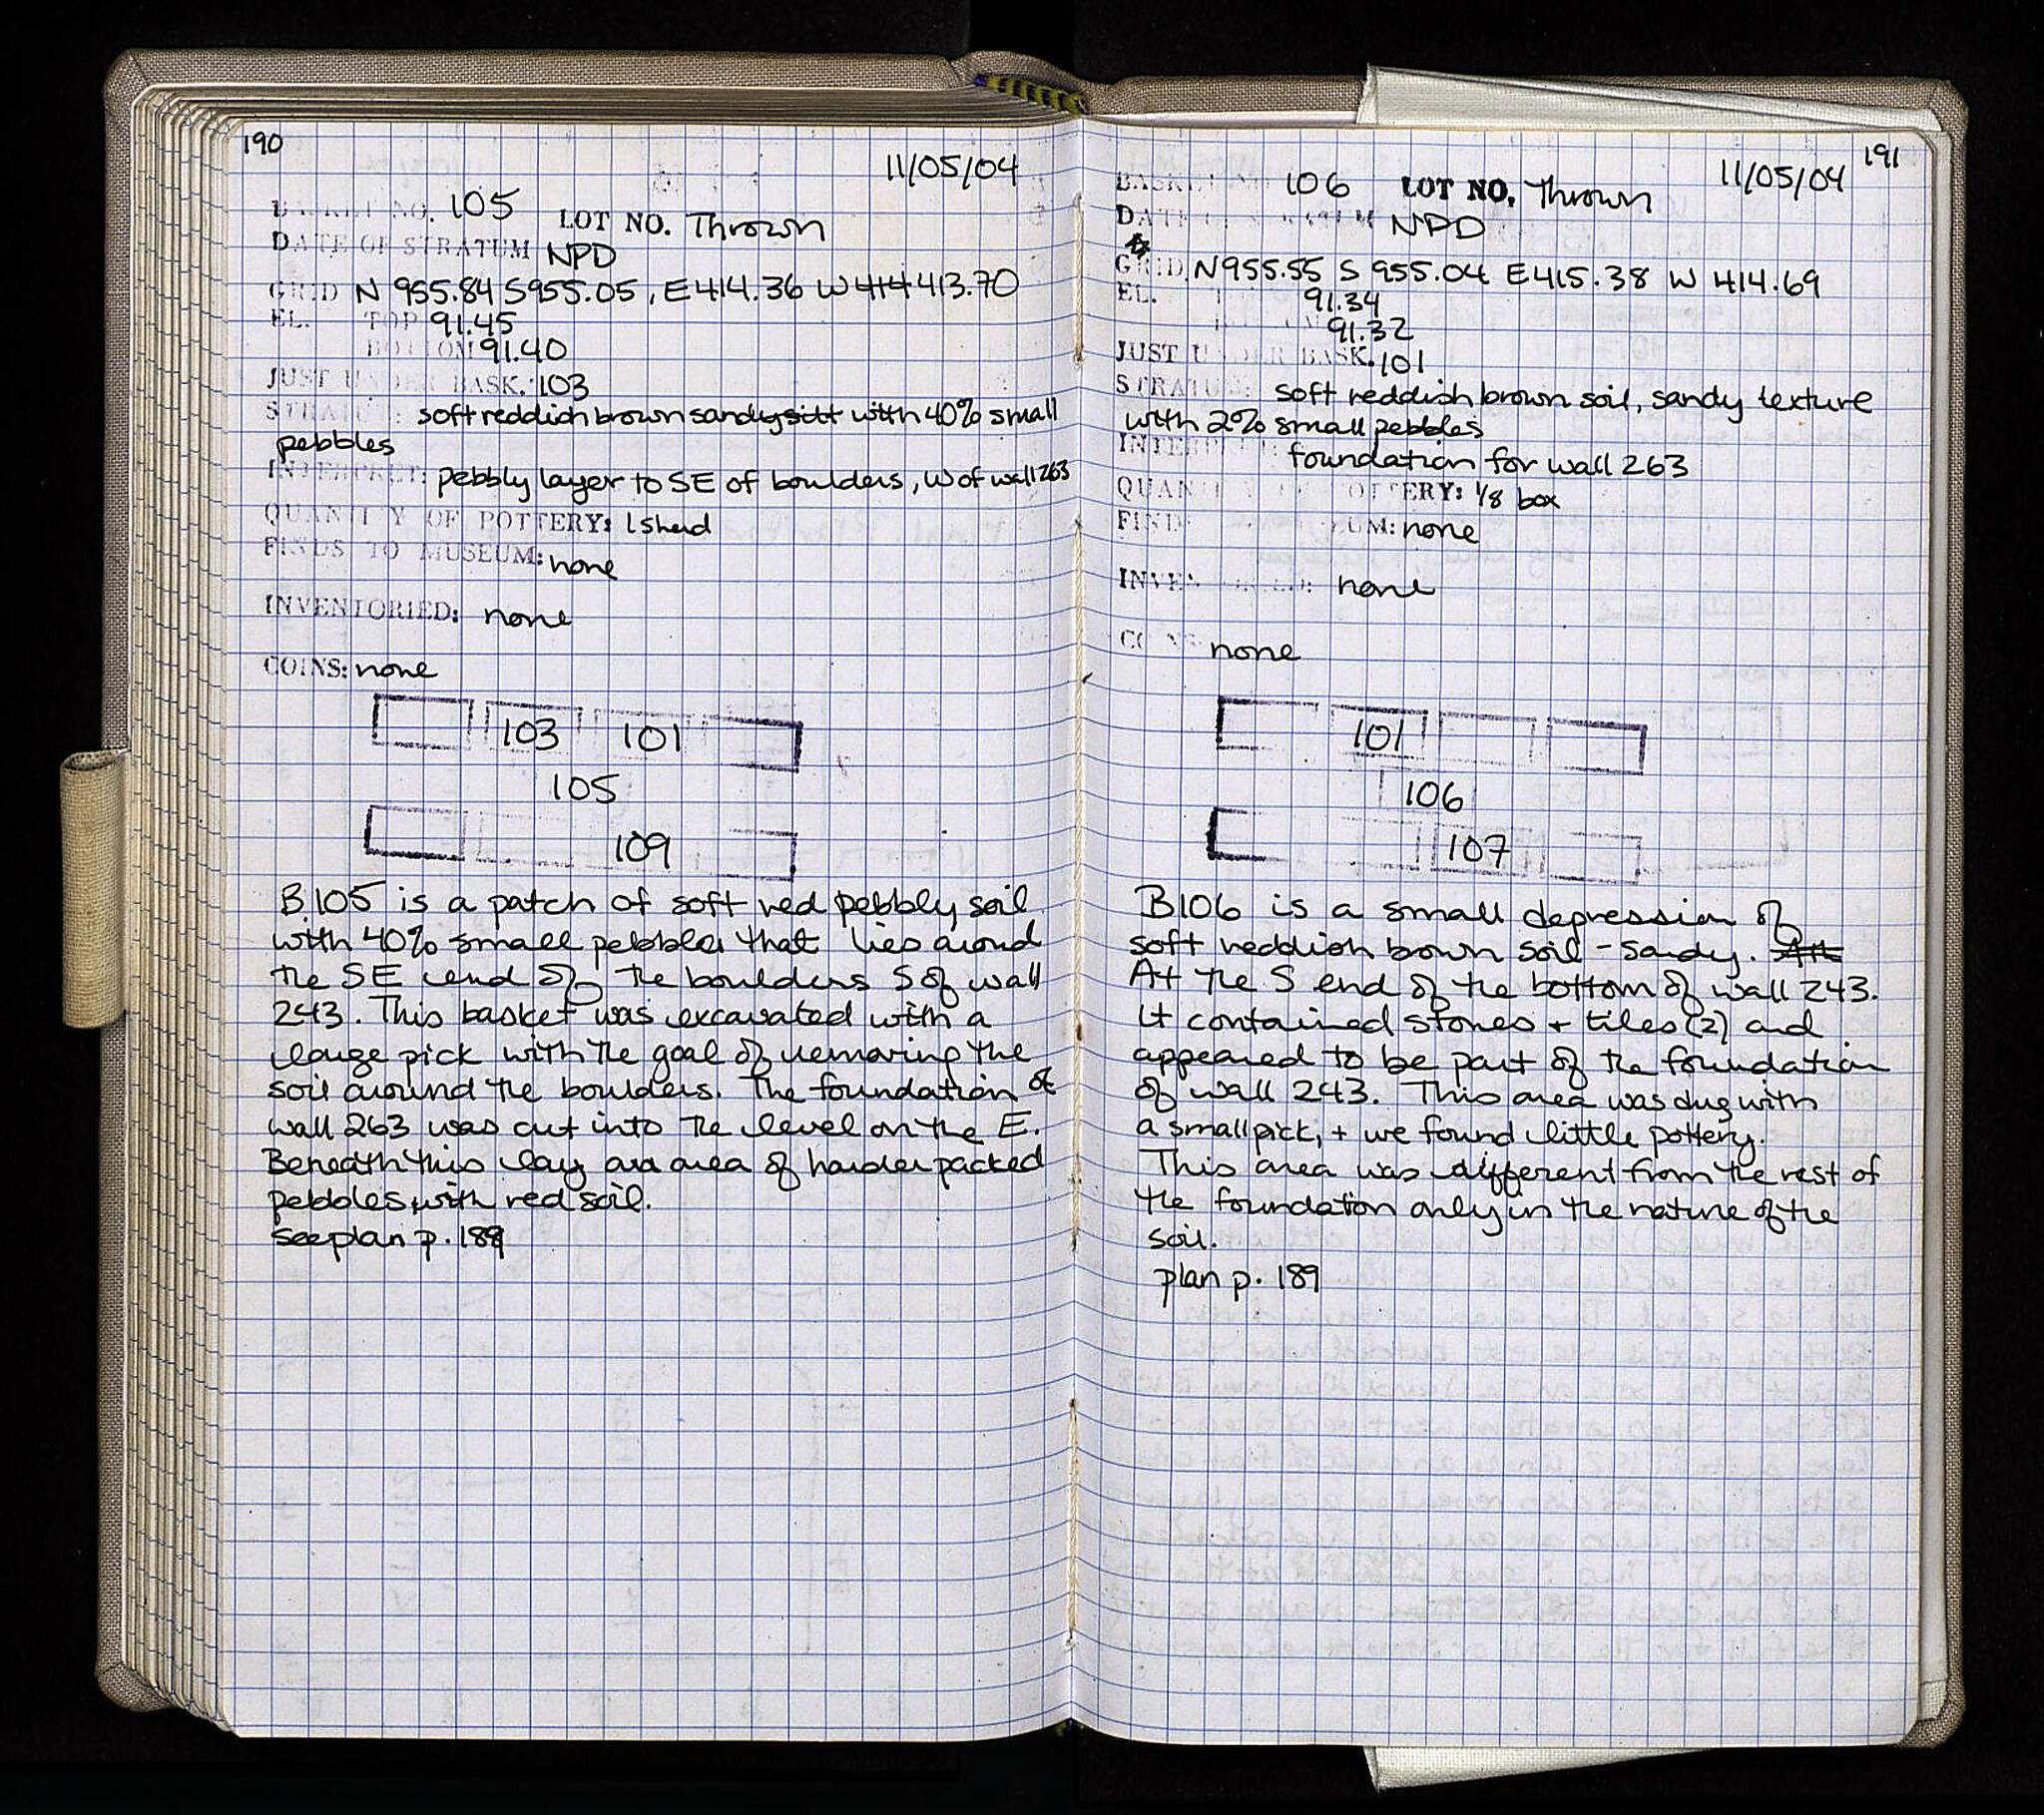 190
11/05/04
BASKET NO. 105 LOT NO. Thrown
DATE OF STRATUM NPD
GRID N 955.84 S955.05, E414.36 W 414 413.70
EL. TOP 91.45
BOTTOM 91.40
JUST UNDER BASK. 103
STRATUM: soft reddish brown sandy silt with 40% small
pebbles
INTERPRET: pebbly layer to SE of boulders, W of wall 263
QUANTITY OF POTTERY: 1 sherd
FINDS TO MUSEUM: none
INVENTORIED: none
COINS: none
103 101
105
109
B.105 is a patch of soft red pebbly soil
with 40% small pebbles that lies around
the SE end of the boulders S of wall
243. This basket was excavated with a
large pick with the goal of removing the
soil around the boulders. The foundation of
wall 263 was cut into the level on the E.
Beneath this lay an area of harder packed
pebbles with red soil.
See plan p. 189
191
11/05/04
BASKET NO. 106 LOT NO. Thrown
DATE OF STRATUM NPD
GRID N955.55 S 955.04 E415.38 W 414.69
EL. 91.34
91.32
JUST UNDER BASK. 101
STRATUM: soft reddish brown soil, sandy texture
with 2% small pebbles
INTERPRET: foundation for wall 263
QUANTITY OF POTTERY: 1/8 box
FINDS TO MUSEUM: none
INVENTORIED: none
COINS none
101
106
107
B106 is a small depression of
soft reddish brown soil - sandy.
At the S end of the bottom of wall 243.
It contained stones + tiles (2) and
appeared to be part of the foundation
of wall 243. This area was dug with
a small pick, + we found little pottery.
This area was different from the rest of
the foundation only in the nature of the
soil.
plan p. 189